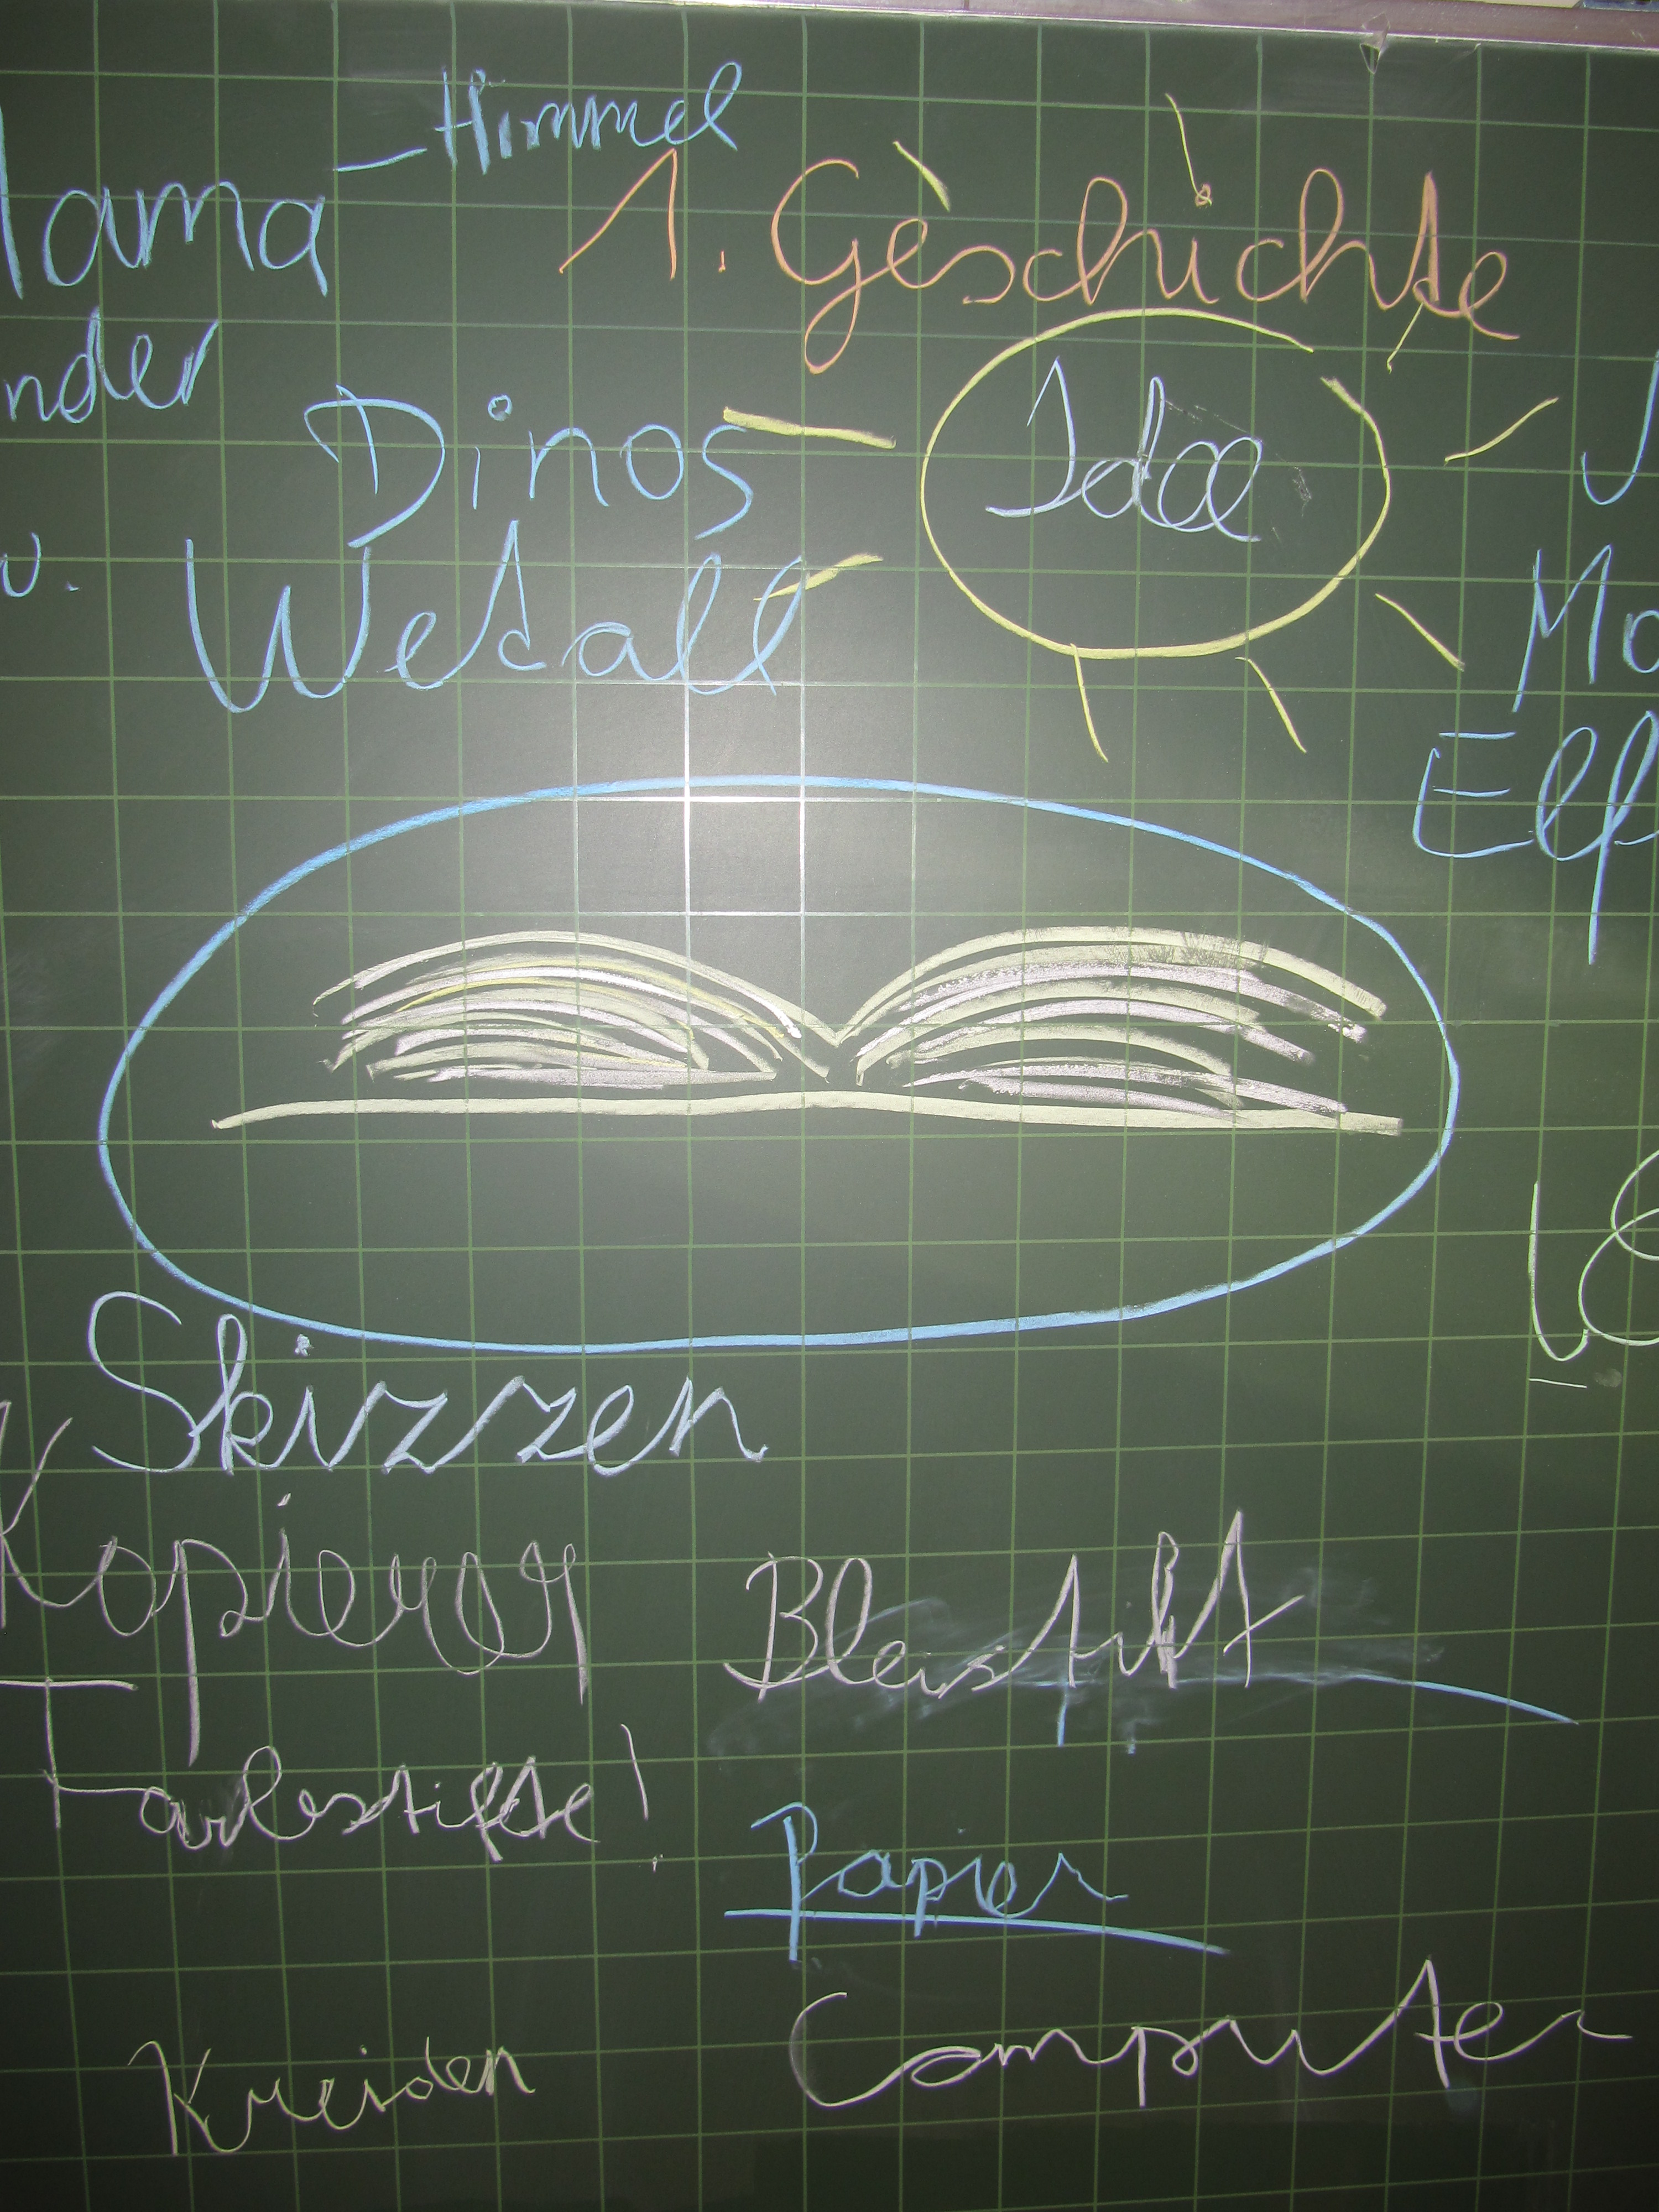 Himmel
lama
1. Geschichte
nder
Dinos
Idee
Wetall
Mo
Elf
Skizzen
Kopierer
Bleistift
Farbestifte!
Papier
Computer
Kreiden